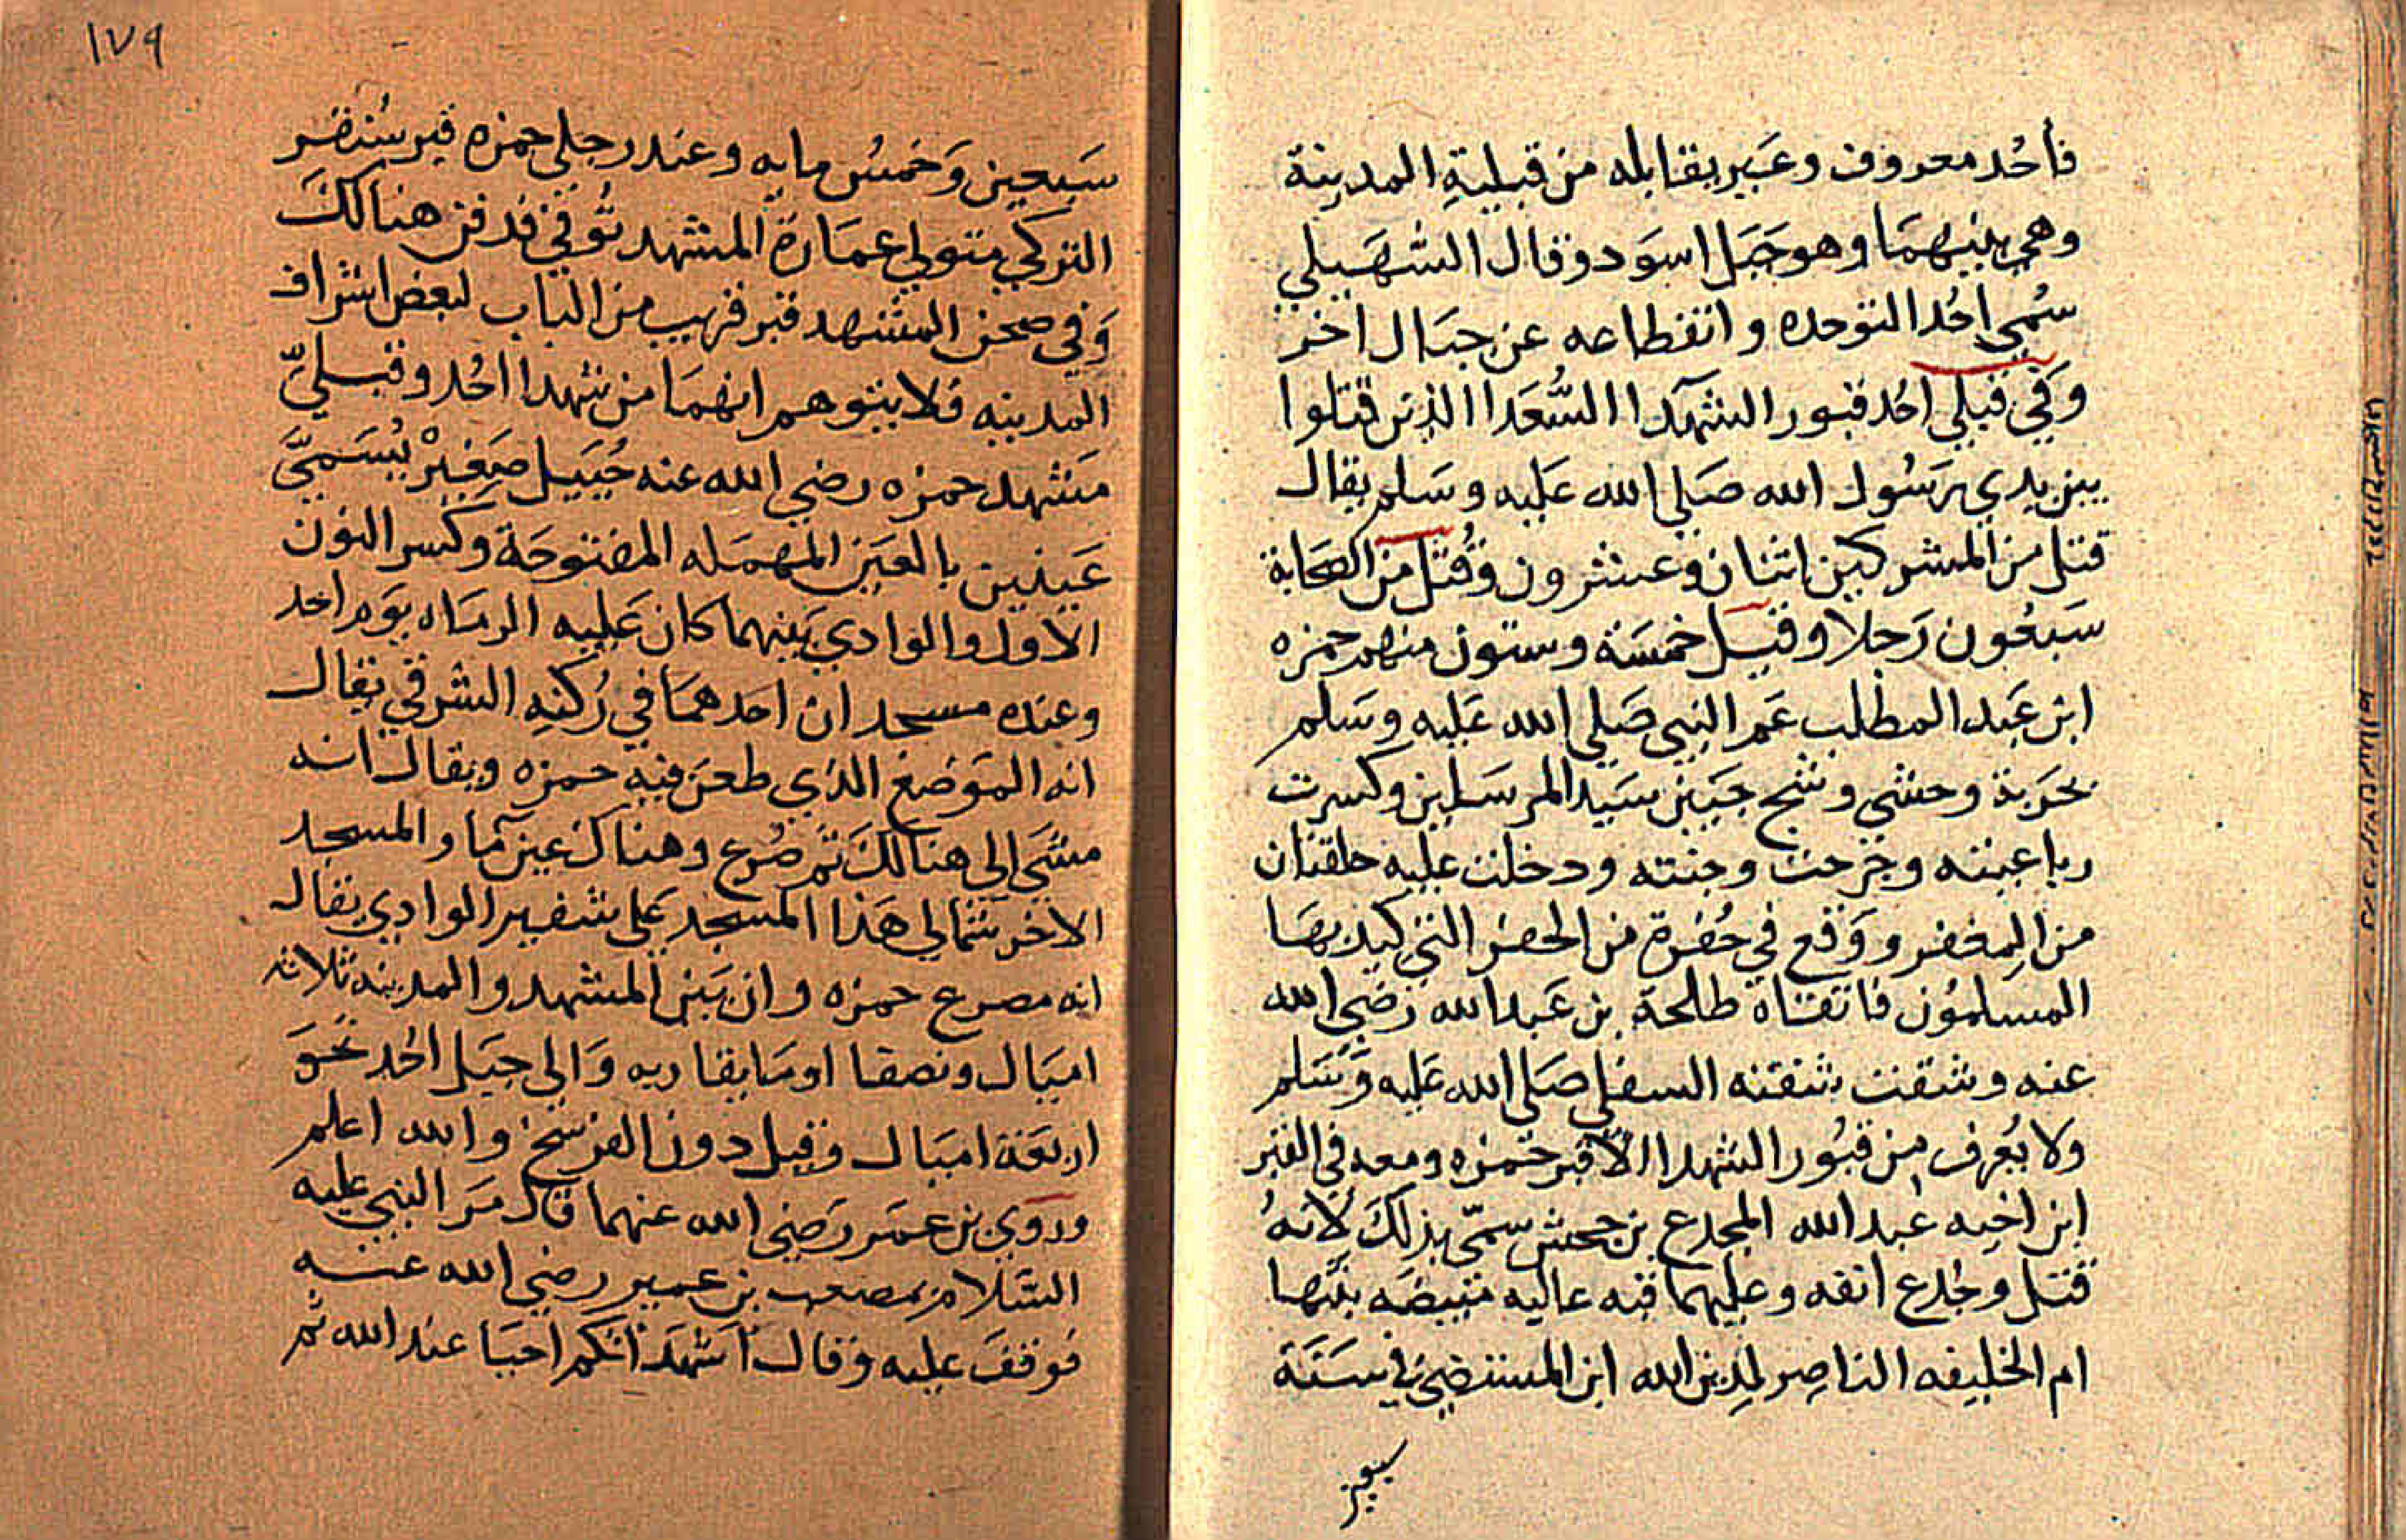 فأحُد معروف وعَير يقابله من قبليةِ المدينة
وهي بينهمَا وهو جَبَل اسوَد وقال السُهَيلي
سُمي احُدا لتوحده وانقطاعه عن جبَال اخر
وَفي قبلي احُد قبور الشهدآ السُّعَدا الذين قتلوا
بين يدي رَسُول الله صَلي الله عَليه وسَلم يقال
قتل من المشركين اثنان وعشرون وقُتل من الصحابة
سَبعُون رَجلا وقيل خمسَة وستون منهم حمزه
ابن عَبد المطلب عَم النبي صَلي الله عَليه وسَلم
بحَربة وحشي وشج جَبين سَيد المرسَلين وكسرت
رباعيته وجرحت وجنته ودخلت عليه حلقتان
من المِغفر ووَقع في حُفرة من الحفر التي كيد بهَا
المسلمُون فاتقناه طلحة بن عَبد الله رَضي الله
عنه وشقت شفته السفلي صَلي الله عَليه وَسَلم
ولا يُعرف من قبُور الشهدا الا قبر حَمزه ومعه في القبر
ابن اخيه عبد الله المجدع بن جحش سمّي بذلكَ لانهُ
قتل وجُدع انفه وعليهما قبه عاليه متبيضَه بنتها
ام الخليفه الناصِر لدِين الله ابن المستضي في سَنَة
سبعين
١٧٩
سَبعين وَخمسُ مايه وعند رجلي حمزه قبر سُنقر
التركي متولي عمَارة المشهد تُوفي فدفن هنالكَ
وَفي صحن المشهد قبر قريب من الباب لبعض اشراف
المدينه فلا يتوهم انهمَا من شهدا احُد وقبليّ
مَشهد حمزه رضي الله عنه جُبيل صَغيرْ يُسَميَّ
عَينين بالعَين المهمَله المفتوحَة وكَسر النون
الاول والوادي بَينهما كان عَليه الرمَاه يوَم احد
وعنده مسجدان احدهمَا في رُكنِه الشرقي يقال
انه الموَضع الذي طعن فيه حمزه ويقال انه
مشَي الي هنالكَ ثم صُرع وهناك عين مآ والمسجد
الاخر شمالي هَذا المسجد عَلي شفير الوادي يقال
انه مصرع حمزه وان بَين المشهد والمدينه ثلاثه
اميَال ونصفا او مَا يقاربه وَالي جبَل احُد نحَو
اربعَة اميَال وقيل دون الفرسخ والله اعلم
وروَي بن عمَر رَضي الله عنهما قال مَر النبي عليه
السَّلام بمصعب بن عمير رضي الله عنه
فوقفَ عليه وقال اَشهَد انكم احيَا عند الله ثم